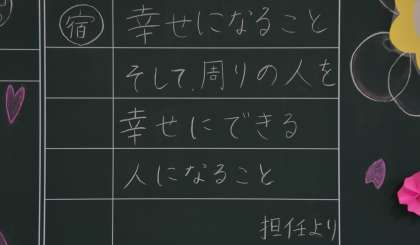 宿 幸せになること
そして、周りの人を
幸せにできる
人になること
担任より